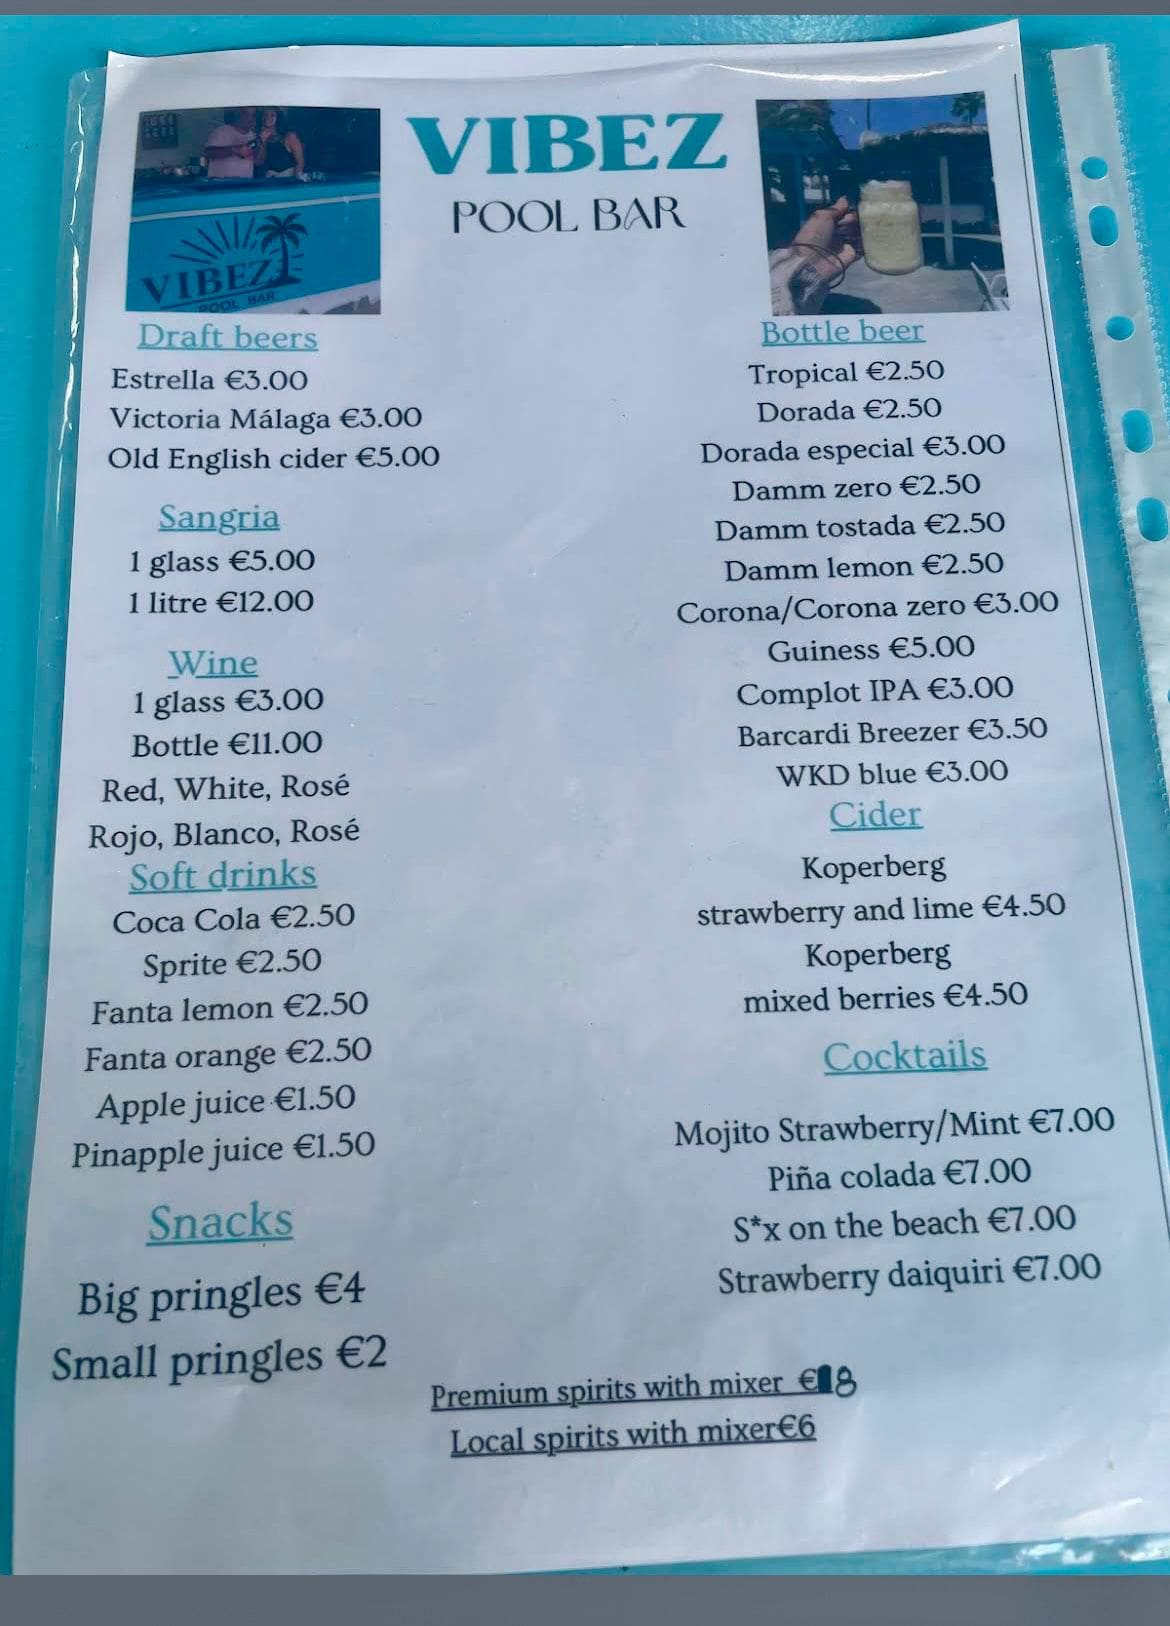 VIBEZ
POOL BAR
VIBEZ
POOL BAR
Draft beers
Estrella €3.00
Victoria Málaga €3.00
Old English cider €5.00
Sangria
1 glass €5.00
1 litre €12.00
Wine
1 glass €3.00
Bottle €11.00
Red, White, Rosé
Rojo, Blanco, Rosé
Soft drinks
Coca Cola €2.50
Sprite €2.50
Fanta lemon €2.50
Fanta orange €2.50
Apple juice €1.50
Pinapple juice €1.50
Snacks
Big pringles €4
Small pringles €2
Bottle beer
Tropical €2.50
Dorada €2.50
Dorada especial €3.00
Damm zero €2.50
Damm tostada €2.50
Damm lemon €2.50
Corona/Corona zero €3.00
Guiness €5.00
Complot IPA €3.00
Barcardi Breezer €3.50
WKD blue €3.00
Cider
Koperberg
strawberry and lime €4.50
Koperberg
mixed berries €4.50
Cocktails
Mojito Strawberry/Mint €7.00
Piña colada €7.00
S*x on the beach €7.00
Strawberry daiquiri €7.00
Premium spirits with mixer €8
Local spirits with mixer€6